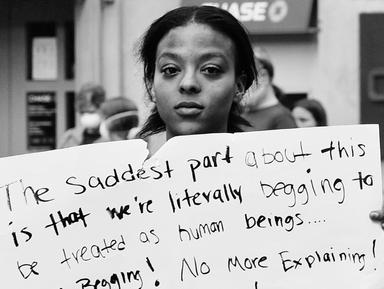 CHASE
The Saddest part about this
is that we're literally begging to
be treated as human beings....
Begging! No More Explaining!